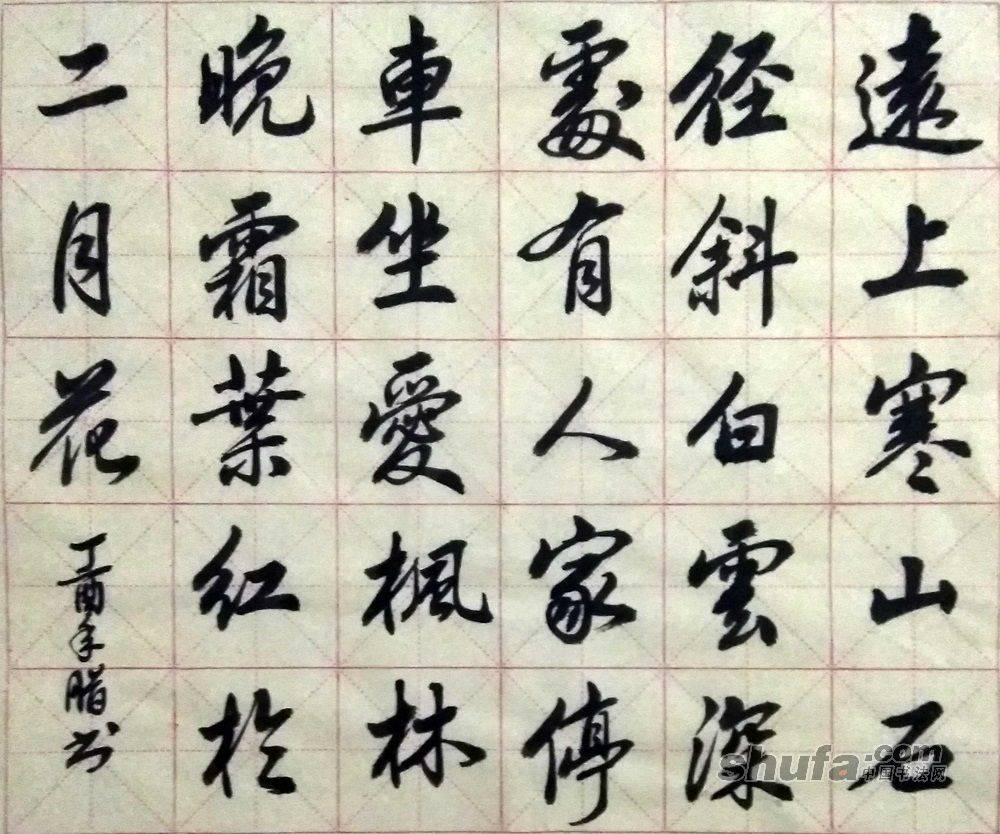 遠上寒山石
徑斜白雲深
處有人家停
車坐愛楓林
晚霜葉紅於
二月花
丁酉年腊书
shufa.com
中国书法网